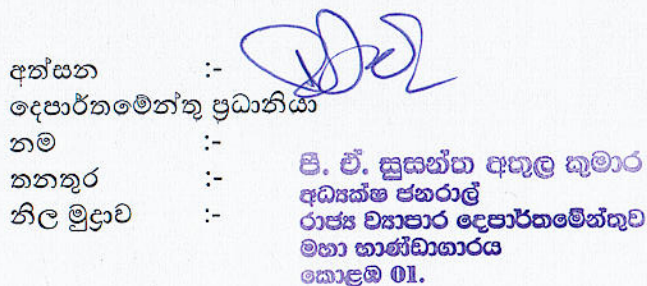 අත්සන :-
දෙපාර්තමේන්තු ප්‍රධානියා
නම :-
තනතුර :-
නිල මුද්‍රාව :-
පී. ඒ. සුසන්ත අතුල කුමාර
අධ්‍යක්ෂ ජනරාල්
රාජ්‍ය ව්‍යාපාර දෙපාර්තමේන්තුව
මහා භාණ්ඩාගාරය
කොළඹ 01.